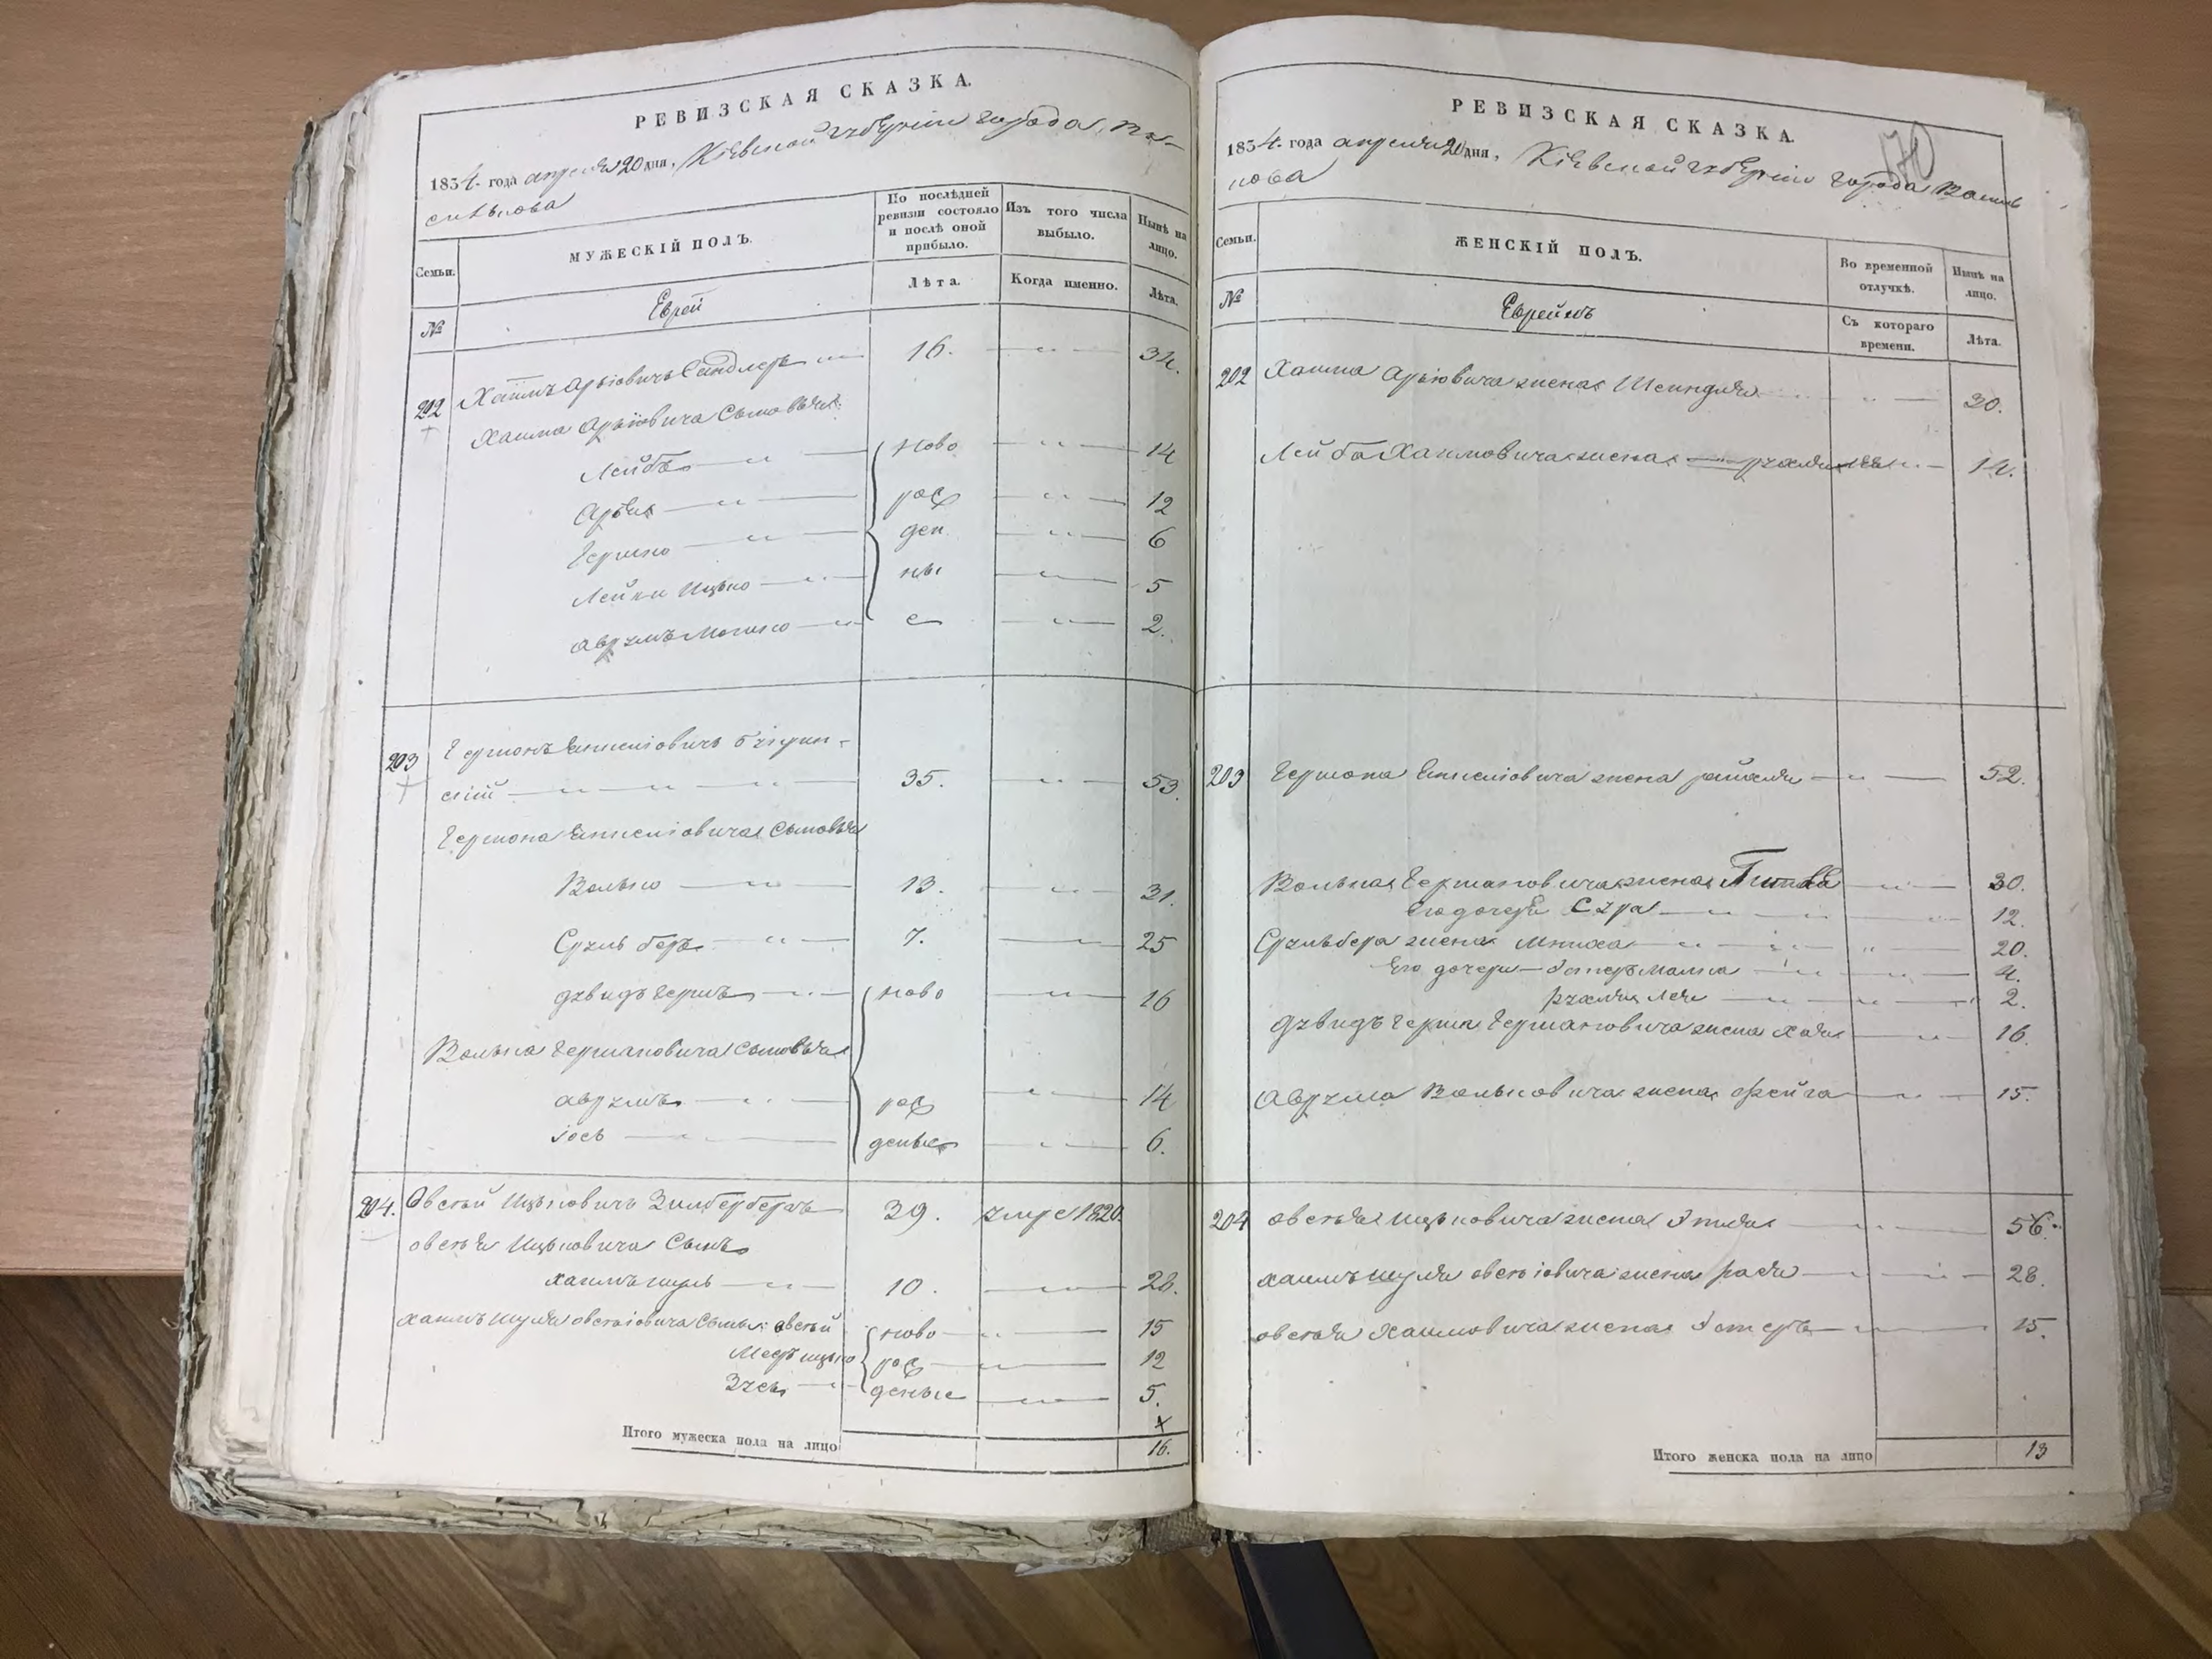 РЕВИЗСКАЯ СКАЗКА.
1834 года апреля 20 дня, Кіевской губерніи города Ва-
силькова
Семьи.
МУЖЕСКІЙ ПОЛЪ.
По послѣдней ревизіи состояло и послѣ оной прибыло.
Изъ того числа выбыло.
Нынѣ на лицо.
№
Еврей
Лѣта.
Когда именно.
Лѣта.
202 Хаимъ Арьіовичъ Сандлеръ 16. 34.
Хаима Арьіовича Сыновья:
Лейба ново 14
Арья рож 12
Гершко ден 6
Ицько ны 5
Аврумъ Мошко е 2.
203 Гершонъ
скій 35. 53.
Гершона Сыновья
Волько 13. 31.
Сруль беръ 7. 25
Дувидъ Гершъ ново 16
Волька Гершоновича Сыновья
Аврумъ рож 14
Іось деные 6.
204. Овсѣй Ицьковичъ Зильбербергъ 39. умре 1820.
Овсѣя Ицьковича Сынъ
Хаимъ Шуль 10. 28.
Хаимъ Шуля Овсѣіовича Сыны: Овсѣй ново 15
Мееръ Ицько рож 12
Зусь деные 5.
Итого мужеска пола на лицо 16.
РЕВИЗСКАЯ СКАЗКА.
170
1834 года апреля 20 дня, Кіевской губерніи города Василь
кова
Семьи.
ЖЕНСКІЙ ПОЛЪ.
Во временной отлучкѣ.
Нынѣ на лицо.
№
Евреинъ
Съ котораго времени.
Лѣта.
202 Хаима Арьіовича жена Шейндля 30.
Лейба Хаимовича жена Рухля 14.
203 Гершона жена Рейзля 52.
Волька Гершоновича жена 30.
Его дочерь Сура 12.
Сруль бера жена 20.
Его дочери Эстеръ Малка 4.
Рухля Лея 2.
Дувидъ Герша Гершоновича жена Хая 16.
Аврума Вольковича жена Фейга 15.
204 Овсѣя Ицьковича жена 56.
Хаимъ Шуля Овсѣіовича жена 28.
Овсѣя Хаимовича жена Эстеръ 15.
Итого женска пола на лицо 13